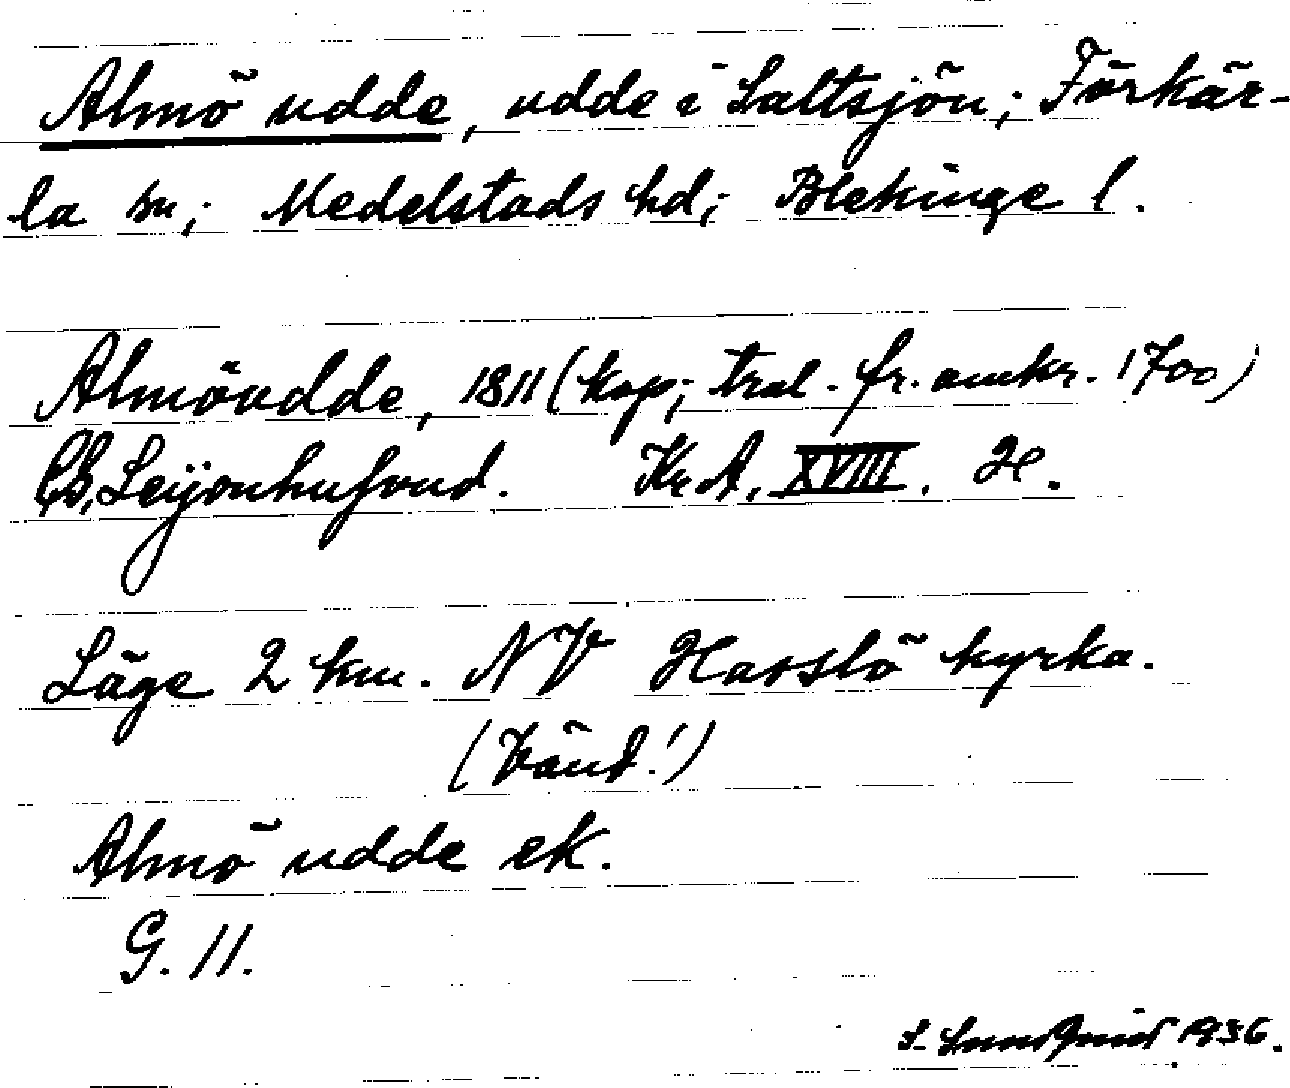 Almö udde, udde i Saltsjön; Förkär-
la sn; Medelstads hd; Blekinge l.
Almöudde, 1811 (kop; tral. fr. omkr. 1700)
Leijonhufvud. Kr.A. XVIII. H.
Läge 2 km. NV Hasslö kyrka.
(Vänd!)
Almö udde ek.
G. 11.
S. Lundquist 1936.